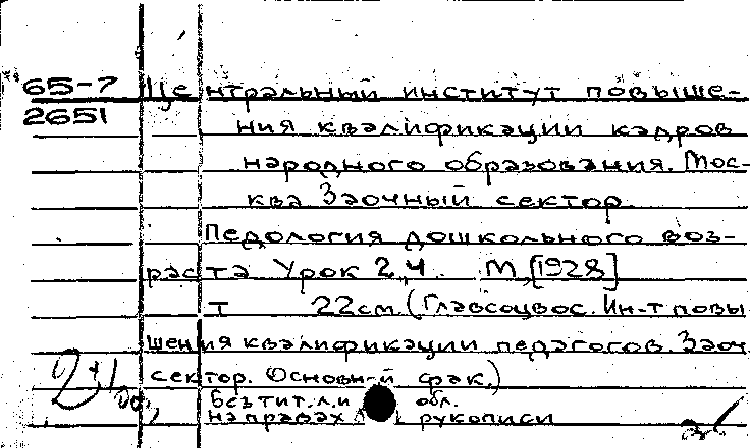 65-7 Центральный институт повыше-
2651
ния квалификации кадров
народного образования. Мос-
ква Заочный сектор.
Педология дошкольного воз-
раста Урок 2,4. М,[1928]
т 22см.(Главсоцвос. Ин-т повы
шения квалификации педагогов. Заоч
сектор. Основн-й фак.)
без тит.л. и обл.
на правах рукописи